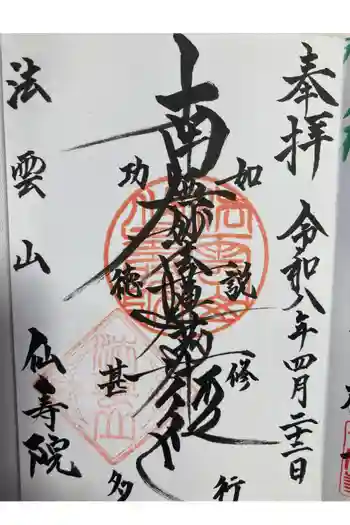 奉拝
令和八年四月二十二日
如説修行
南無妙法蓮華経
功徳甚多
法雲山
仙寿院